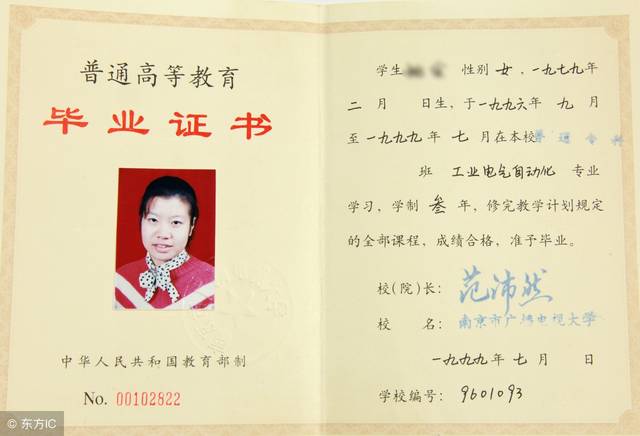 普通高等教育
毕业证书
中华人民共和国教育部制
No. 00102822
学生 性别 女,一九七九年
二 月 日生,于一九九六年 九 月
至一九九九年 七 月在本校普通专科
班 工业电气自动化 专业
学习,学制 叁 年,修完教学计划规定
的全部课程,成绩合格,准予毕业。
校(院)长: 范沛然
校 名: 南京市广播电视大学
一九九九年 七 月 日
学校编号: 9601093
© 东方IC